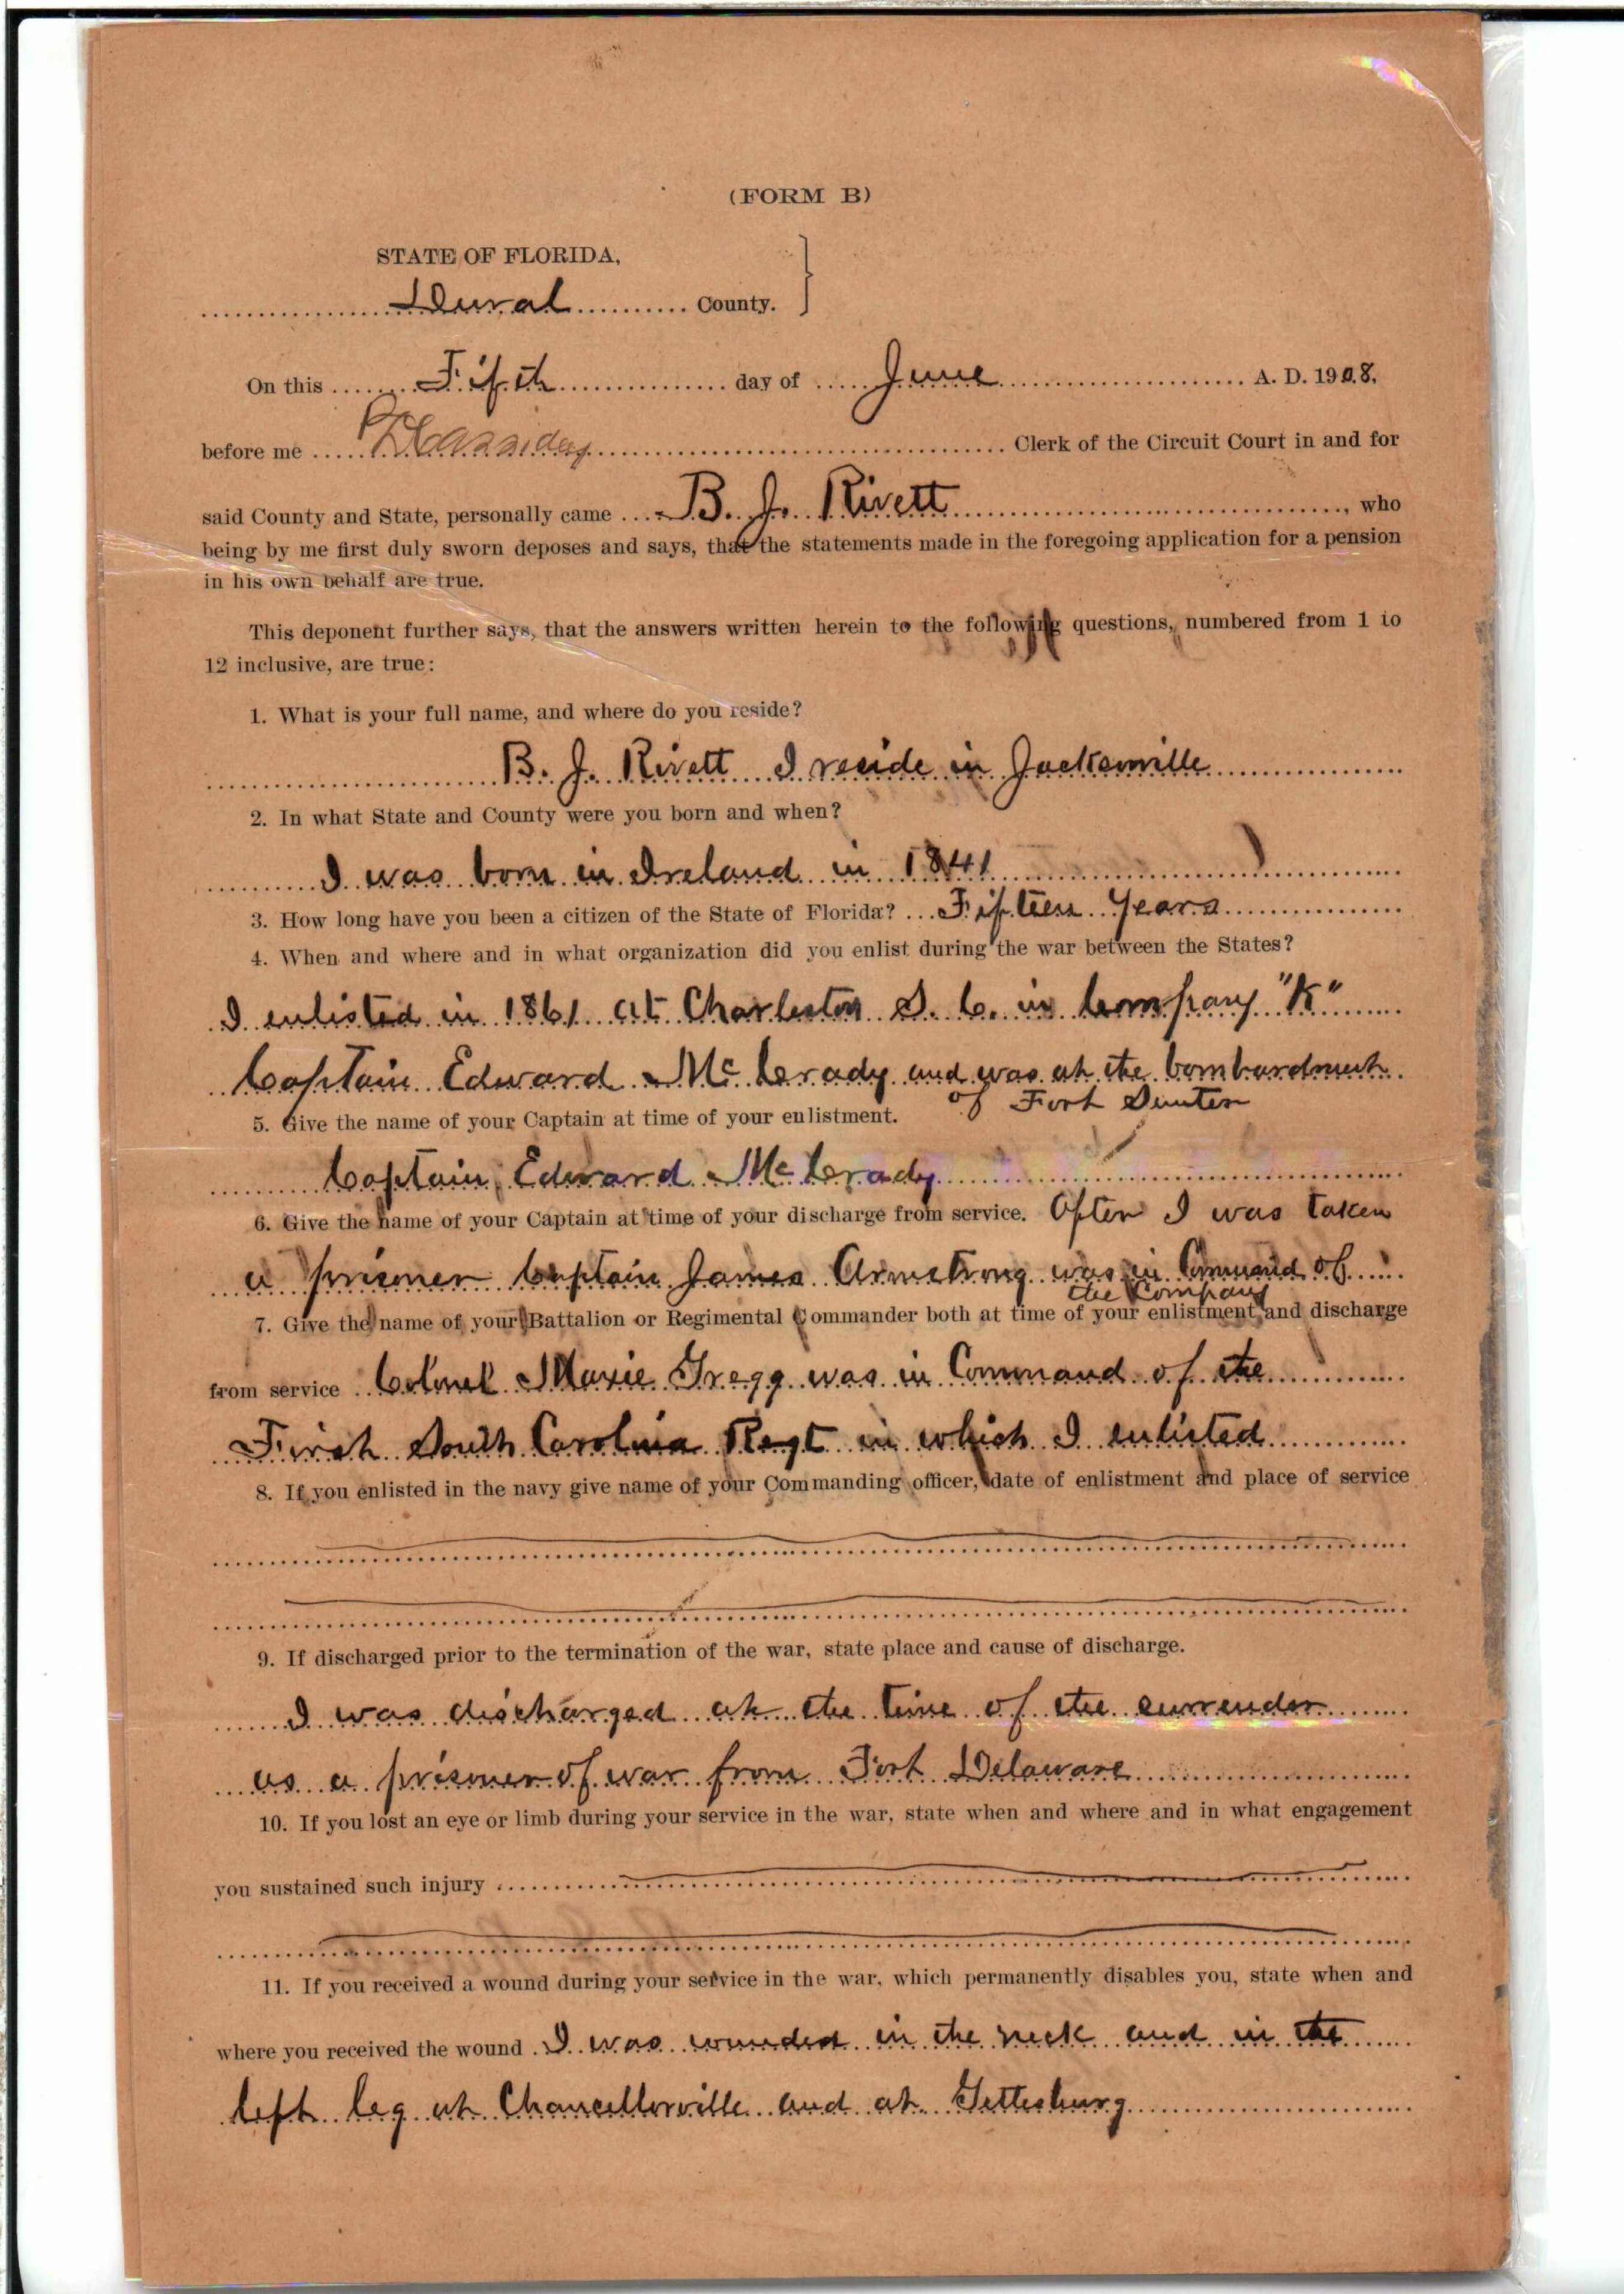 (FORM B)
STATE OF FLORIDA,
Duval County.
On this Fifth day of June A. D. 1908,
before me P D Cassidey Clerk of the Circuit Court in and for
said County and State, personally came B. J. Rivett, who
being by me first duly sworn deposes and says, that the statements made in the foregoing application for a pension
in his own behalf are true.
This deponent further says, that the answers written herein to the following questions, numbered from 1 to
12 inclusive, are true:
1. What is your full name, and where do you reside?
B. J. Rivett I reside in Jacksonville
2. In what State and County were you born and when?
I was born in Ireland in 1841
3. How long have you been a citizen of the State of Florida? Fifteen Years
4. When and where and in what organization did you enlist during the war between the States?
I enlisted in 1861 at Charleston S. C. in Company "K"
Captain Edward McCrady and was at the bombardment
of Fort Sumter
5. Give the name of your Captain at time of your enlistment.
Captain Edward McCrady
6. Give the name of your Captain at time of your discharge from service. After I was taken
a prisoner Captain James Armstrong was in Command of
the Company
7. Give the name of your Battalion or Regimental Commander both at time of your enlistment and discharge
from service Colonel Maxie Gregg was in Command of the
First South Carolina Regt in which I enlisted
8. If you enlisted in the navy give name of your Commanding officer, date of enlistment and place of service
9. If discharged prior to the termination of the war, state place and cause of discharge.
I was discharged at the time of the surrender
as a prisoner of war from Fort Delaware
10. If you lost an eye or limb during your service in the war, state when and where and in what engagement
you sustained such injury
11. If you received a wound during your service in the war, which permanently disables you, state when and
where you received the wound I was wounded in the neck and in the
left leg at Chancellorville and at Gettesburg